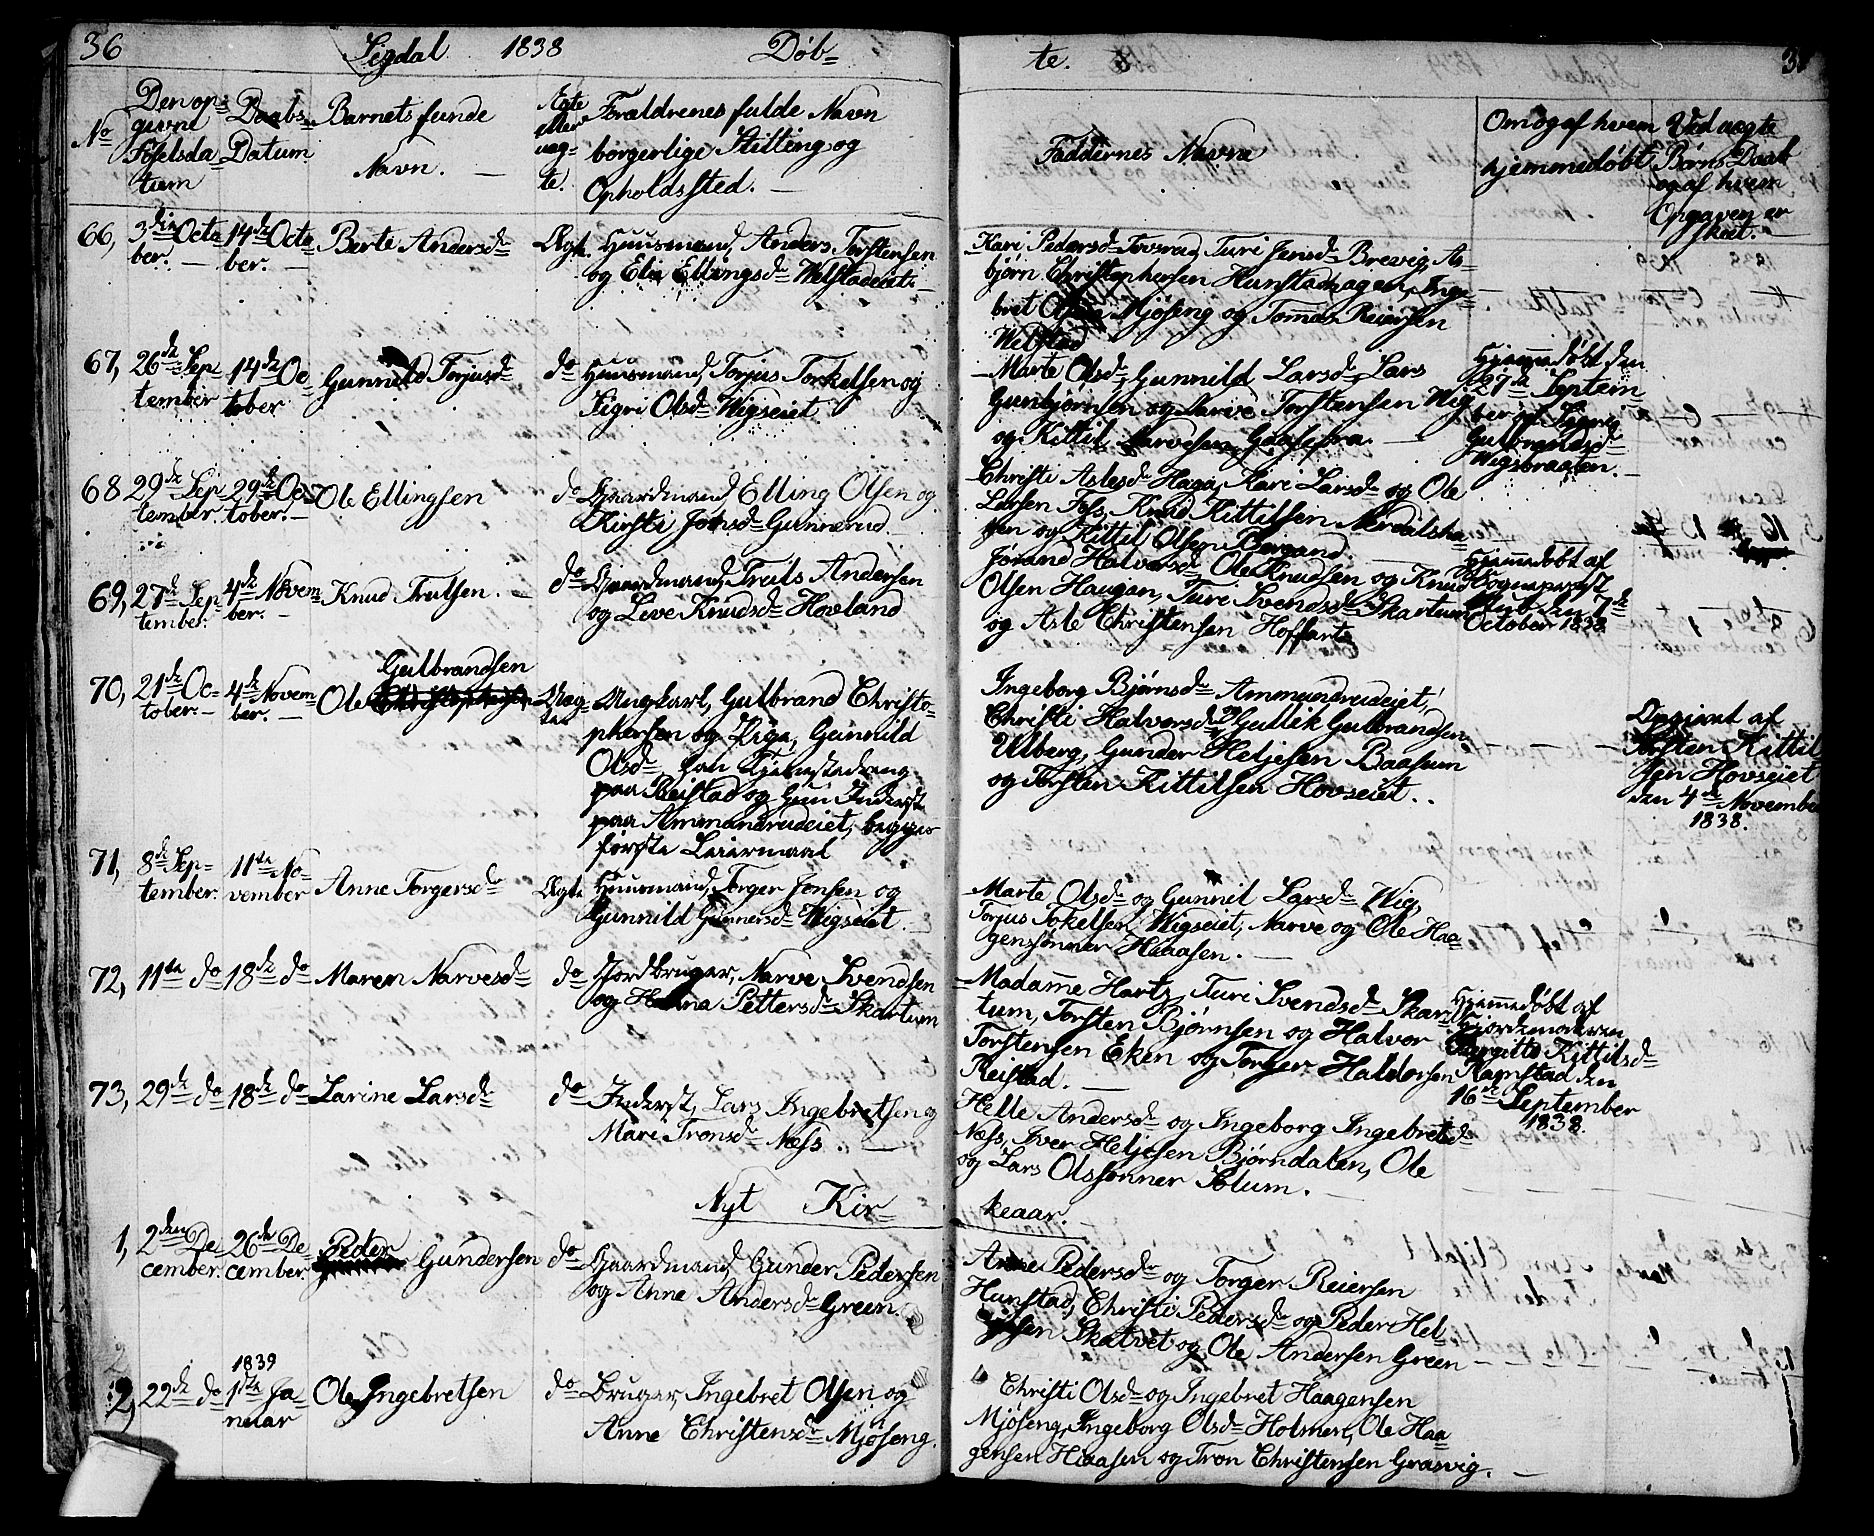 36 Sigdal 1838 Døb=
te.
No
Den op=
givne
Føselsda
tum
Daabs=
Datum
Barnets fulde
Navn. —
Ægte
eller
uæg=
te.
Foraldrenes fulde Navn
borgerlige Stilling og
Opholdssted. —
Faddernes Navne
Om og af hvem
hjemmedøbt
Ved uægte
Børns Daab
og af hvem
Opgaven er
skeet. —
66, 3die Octo
ber. —
14de Octo
ber. —
Berte Andersdr
Ægt.
Huusmand, Anders Torstensen
og Elie Ellingsdr Welstadeiet. —
Kari Pedersdr Tovsrud, Turi Jensdr Brevig, As=
bjørn Christophersen Hunstadhagen, Inge=
bret Olsen Mjøseng og Tommas Reiersen
Welstad
67, 26de Sep
tember
14de Oc
tober
Gunnild Torjusdr
do
Huusmand, Torjus Torkelsen og
Sigri Olsdr Wigseiet
Marte Olsdr, Gunnild Larsdr, Lars
Gunbjørnsen og Narve Torstensen Wig
og Kittil Narvesen Gaasefra. —
Hjemedøbt den
27de Septem
ber af Sigrig
Gulbrandsdr
Wigsbraaten. —
68 29de Sep
tember.
29de Oc
tober. —
Ole Ellingsen
do
Gaardmand Elling Olsen og
Kirsti Jonsdr Gunnerud. —
Christi Aslesdr Haga, Kari Larsdr og Ole
Larsen Foss, Knud Kittilsen Nerdalsha=
gen og Kittil Olsen Bergand
69, 27de Sep
tember.
4de Novem
ber. —
Knud Trulsen. —
do
Gaardmand, Truls Andersen
og Leve Knudsdr Hovland
Jørand Halvorsdr Ole Knudsen og Knud
Olsen Haugan, Turi Svendsdr Skartum
og Asle Christensen Hoffart
Hjemedøbt af
Sogneprest
den 7de
October 1838
70, 21de Oc=
tober. —
4de Novem
ber. —
Gulbrandsen
Ole
Uæg=
te
Ungkarl, Gulbrand Christo=
phersen og Pige, Gunnild
Olsdr han Tjenestedreng
paa Reistad og hun Inderst
paa Ammundrudeiet, begges
første Leiermaal
Ingeborg Bjørnsdr Ammundrudeiet,
Christi Halvorsdr og Gullik Gulbrandsen
Ulberg, Gunder Heljesen Baasum
og Torsten Kittilsen Hovseiet. .
Opgivet af
Torsten Kittil
sen Hovseiet
den 4de November
1838.
71, 8de Sep=
tember.
11te No=
vember
Anne Torgersdr
Ægte
Huusmand, Torger Jonsen og
Gunnild Gunnersdr Wigseiet. —
Marte Olsdr og Gunnil Larsdr Wig,
Torjus Torkelsen Wigseiet, Narve og Ole Haa=
genssønner Haaasen. —
72, 11te do 18de do Maren Narvesdr
do
Jordbruger, Narve Svendsen
og Helena Pettersdr Skartum
Madamme Hartz, Turi Svendsdr Skar=
tum, Torsten Bjørnsen og Halvor
Torstensen Eken og Torger Haldorsen
Reistad. —
Hjemmedøbt af
Gjordemoderen
Bergitte Kittilsdr
Ramstad den
16de September
1838.
73, 29de do 18de do Larine Larsdr
do
Inderst, Lars Ingebretsen og
Mari Tronsdr Næss. —
Helle Andersdr og Ingeborg Ingebretsdr
Næss, Iver Heljesen Bjørndalen, Ole
og Lars Olssønner Solum. —
Nyt Kir=
keaar.
1, 2den De
cember.
26de De
cember.
Peder
Gundersen
do
Gaardmand, Gunder Pedersen
og Anne Andersdr Green.
Anne Pedersdr og Torger Reiersen
Hunstad, Christi Pedersdr og Peder Hel=
jesen Skatvet og Ole Andersen Green
2, 22de do
1839
1ste Ja
nuar
Ole Ingebretsen
do
Bruger, Ingebret Olsen og
Anne Christensdr Mjøseng.
Christi Olsdr og Ingebret Haagensen
Mjøseng, Ingeborg Olsdr Holmen, Ole Haa
gensen Haaasen og Tron Christensen Grasvig. —